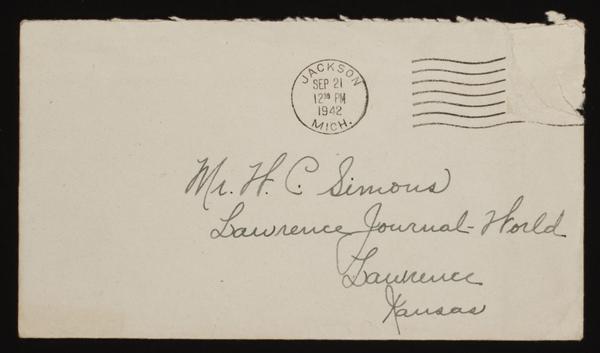 JACKSON
SEP 21
12 30 PM
1942
MICH.
Mr. H. C. Simons
Lawrence Journal-World
Lawrence
Kansas